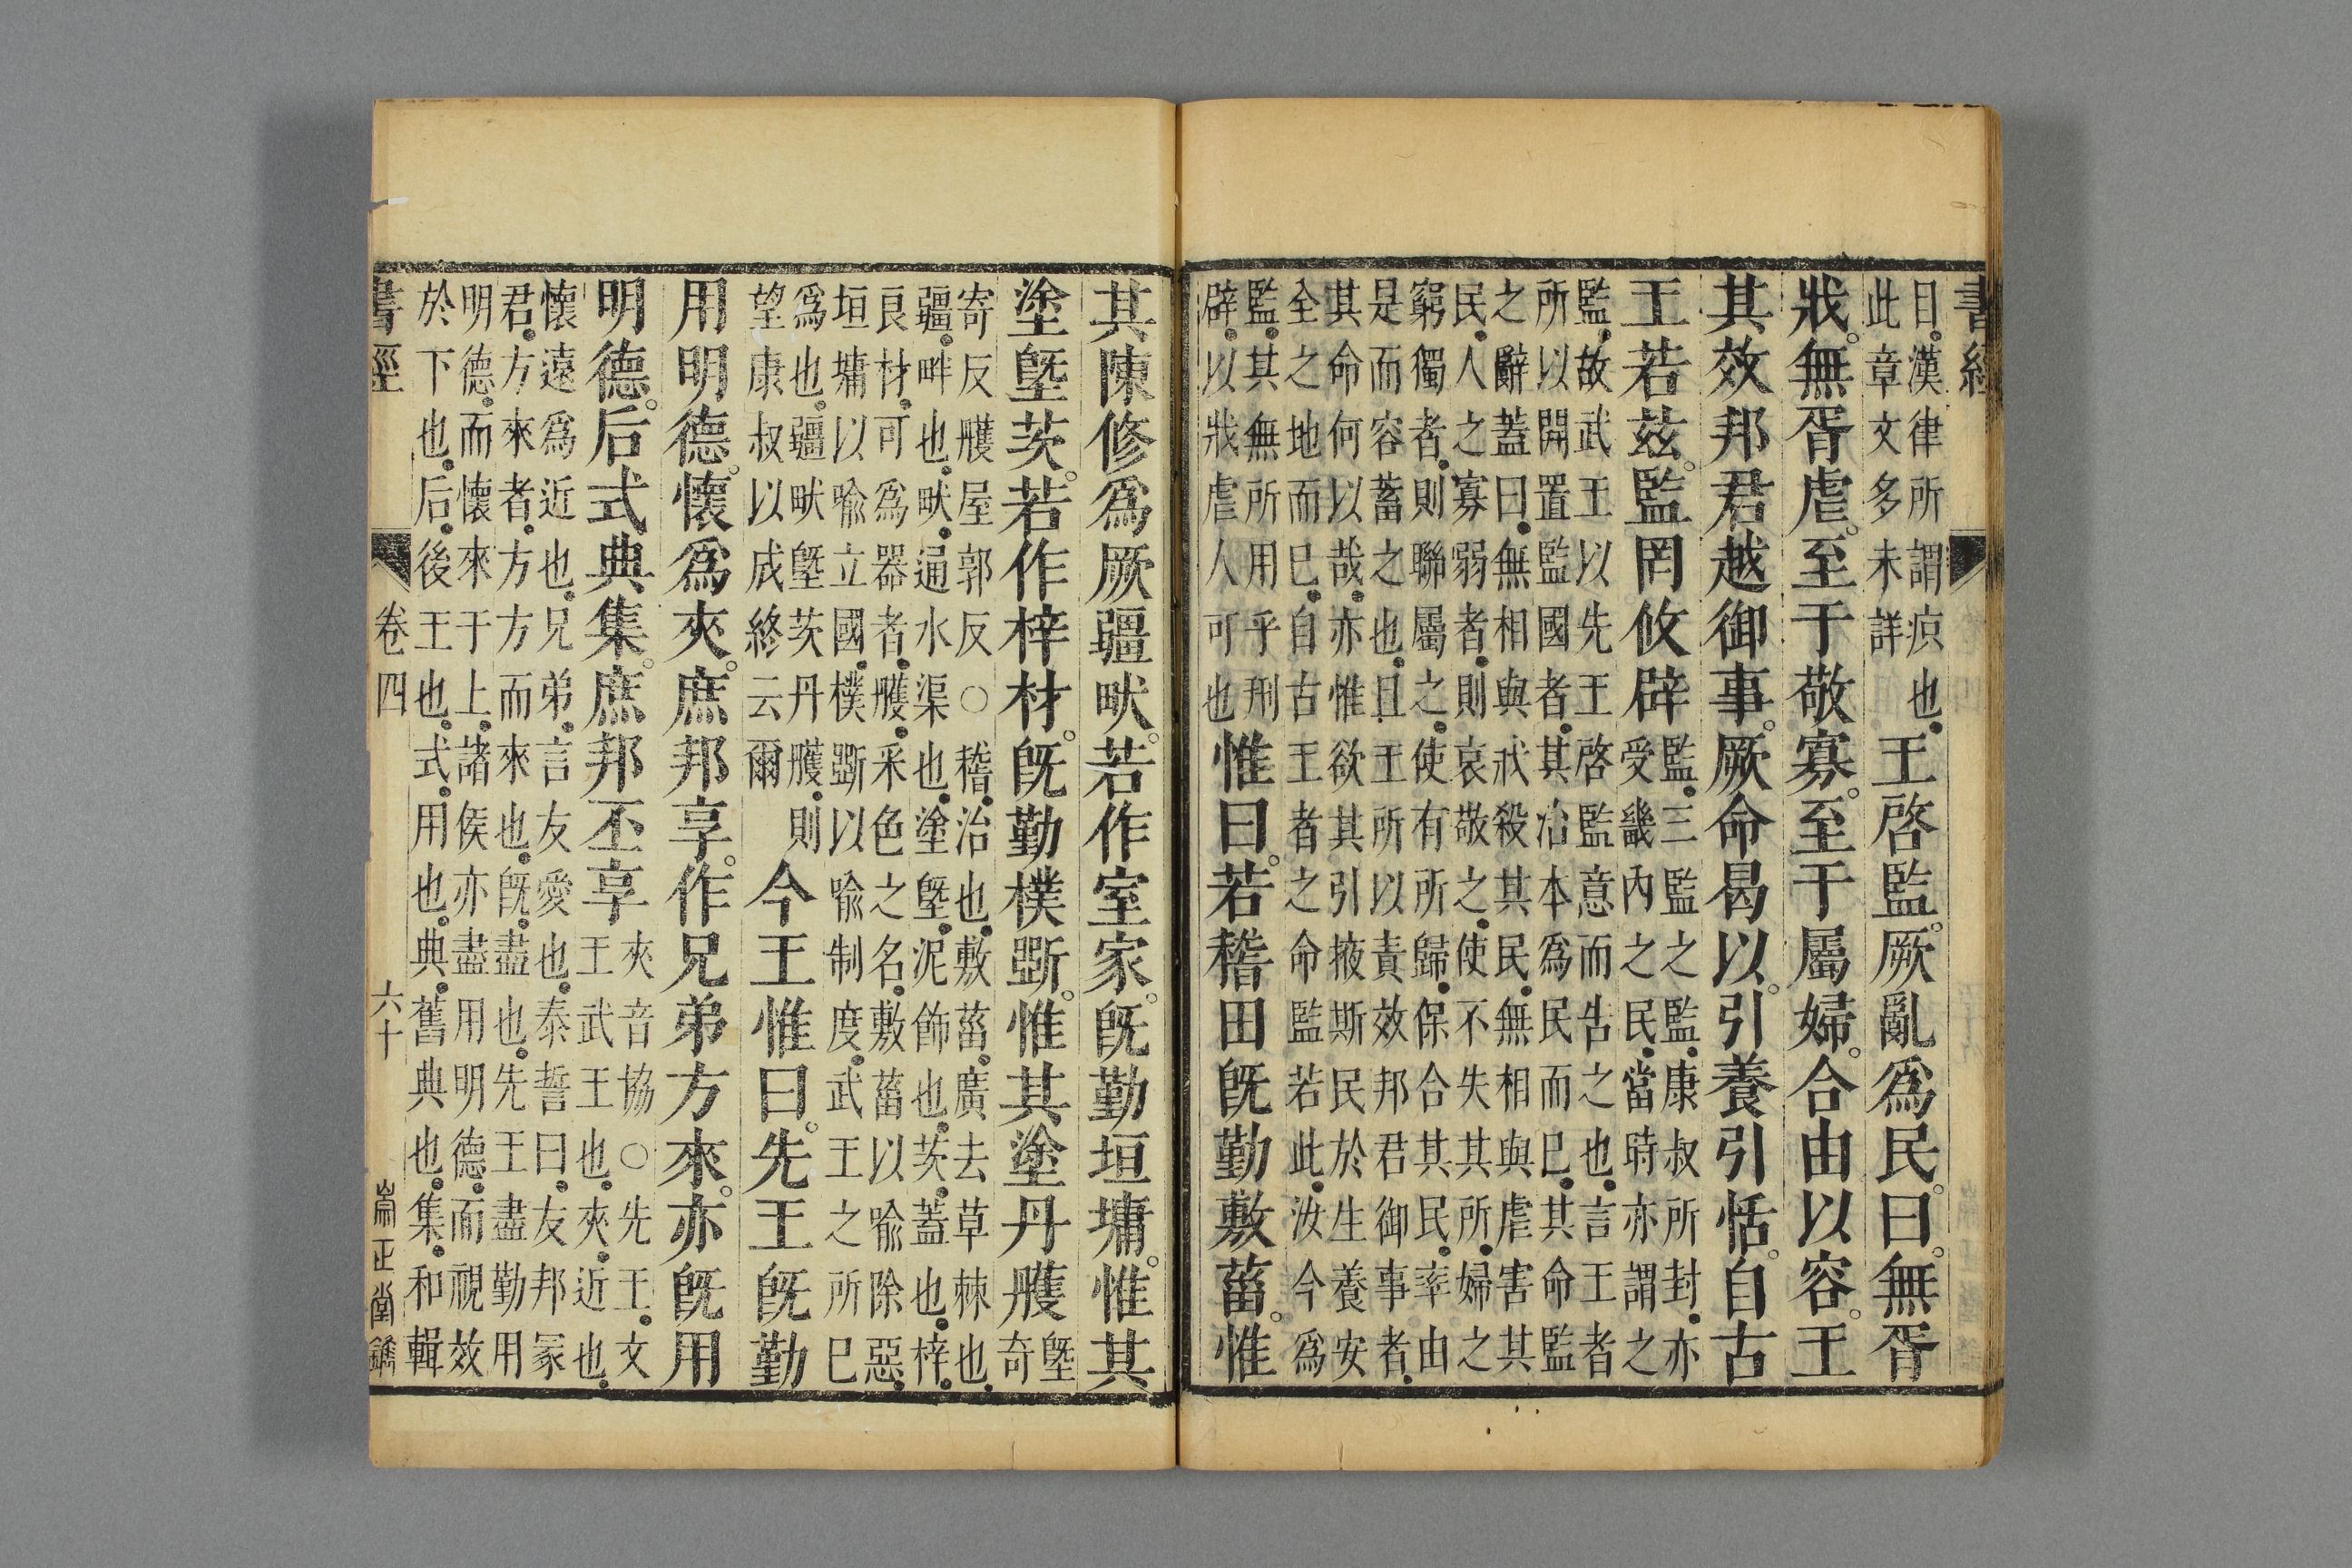 書經
目、漢律所謂疻也、
此章文多未詳
王啓監。厥亂爲民。曰。無胥
戕。無胥虐。至于敬寡。至于屬婦。合由以容。王
其效邦君越御事。厥命曷以。引養引恬。自古
王若茲。監罔攸辟
監、三監之監、康叔所封、亦
受畿內之民、當時亦謂之
監、故武王以先王啓監意而告之也、言王者
所以開置監國者、其治本爲民而已、其命監
之辭蓋曰、無相與戕殺其民、無相與虐害其
民、人之寡弱者、則哀敬之、使不失其所、婦之
窮獨者、則聯屬之、使有所歸、保合其民、率由
是而容蓄之也、且王所以責效邦君御事者、
其命何以哉、亦惟欲其引掖斯民於生養安
全之地而已、自古王者之命監若此、汝今爲
監、其無所用乎刑
辟、以戕虐人可也
惟曰。若稽田旣勤敷菑。惟
其陳修爲厥疆畎。若作室家。旣勤垣墉。惟其
塗塈茨。若作梓材。旣勤樸斲。惟其塗丹雘
塈
奇
寄反雘屋郭反○稽、治也、敷菑、廣去草棘也、
疆、畔也、畎、通水渠也、塗塈、泥飾也、茨、蓋也、梓、
良材、可爲器者、雘、采色之名、敷菑以喻除惡、
垣墉以喻立國、樸斲以喻制度、武王之所已
爲也、疆畎塈茨丹雘、則
望康叔以成終云爾
今王惟曰。先王旣勤
用明德。懷爲夾。庶邦享。作兄弟方來。亦旣用
明德。后式典集。庶邦丕享
夾音協○先王、文
王武王也、夾、近也、
懷遠爲近也、兄弟、言友愛也、泰誓曰、友邦冢
君、方來者、方方而來也、旣、盡也、先王盡勤用
明德、而懷來于上、諸侯亦盡用明德、而視效
於下也、后、後王也、式、用也、典、舊典也、集、和輯
書經 卷四 六十 崇正堂鐫